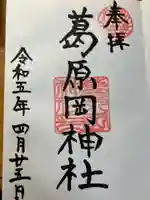 奉拝
葛原岡神社
令和五年四月廿五日